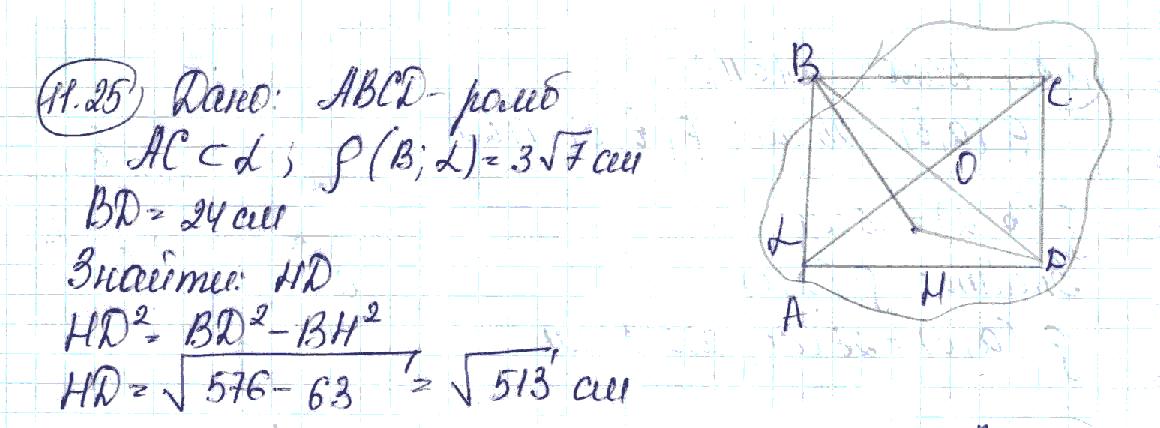 11.25) Дано: ABCD - ромб
AC ⊂ L; ρ(B; L) = 3√7 см
BD = 24 см
Знайти: HD
HD² = BD² - BH²
HD = √576 - 63 = √513 см
B
C
O
L
D
H
A